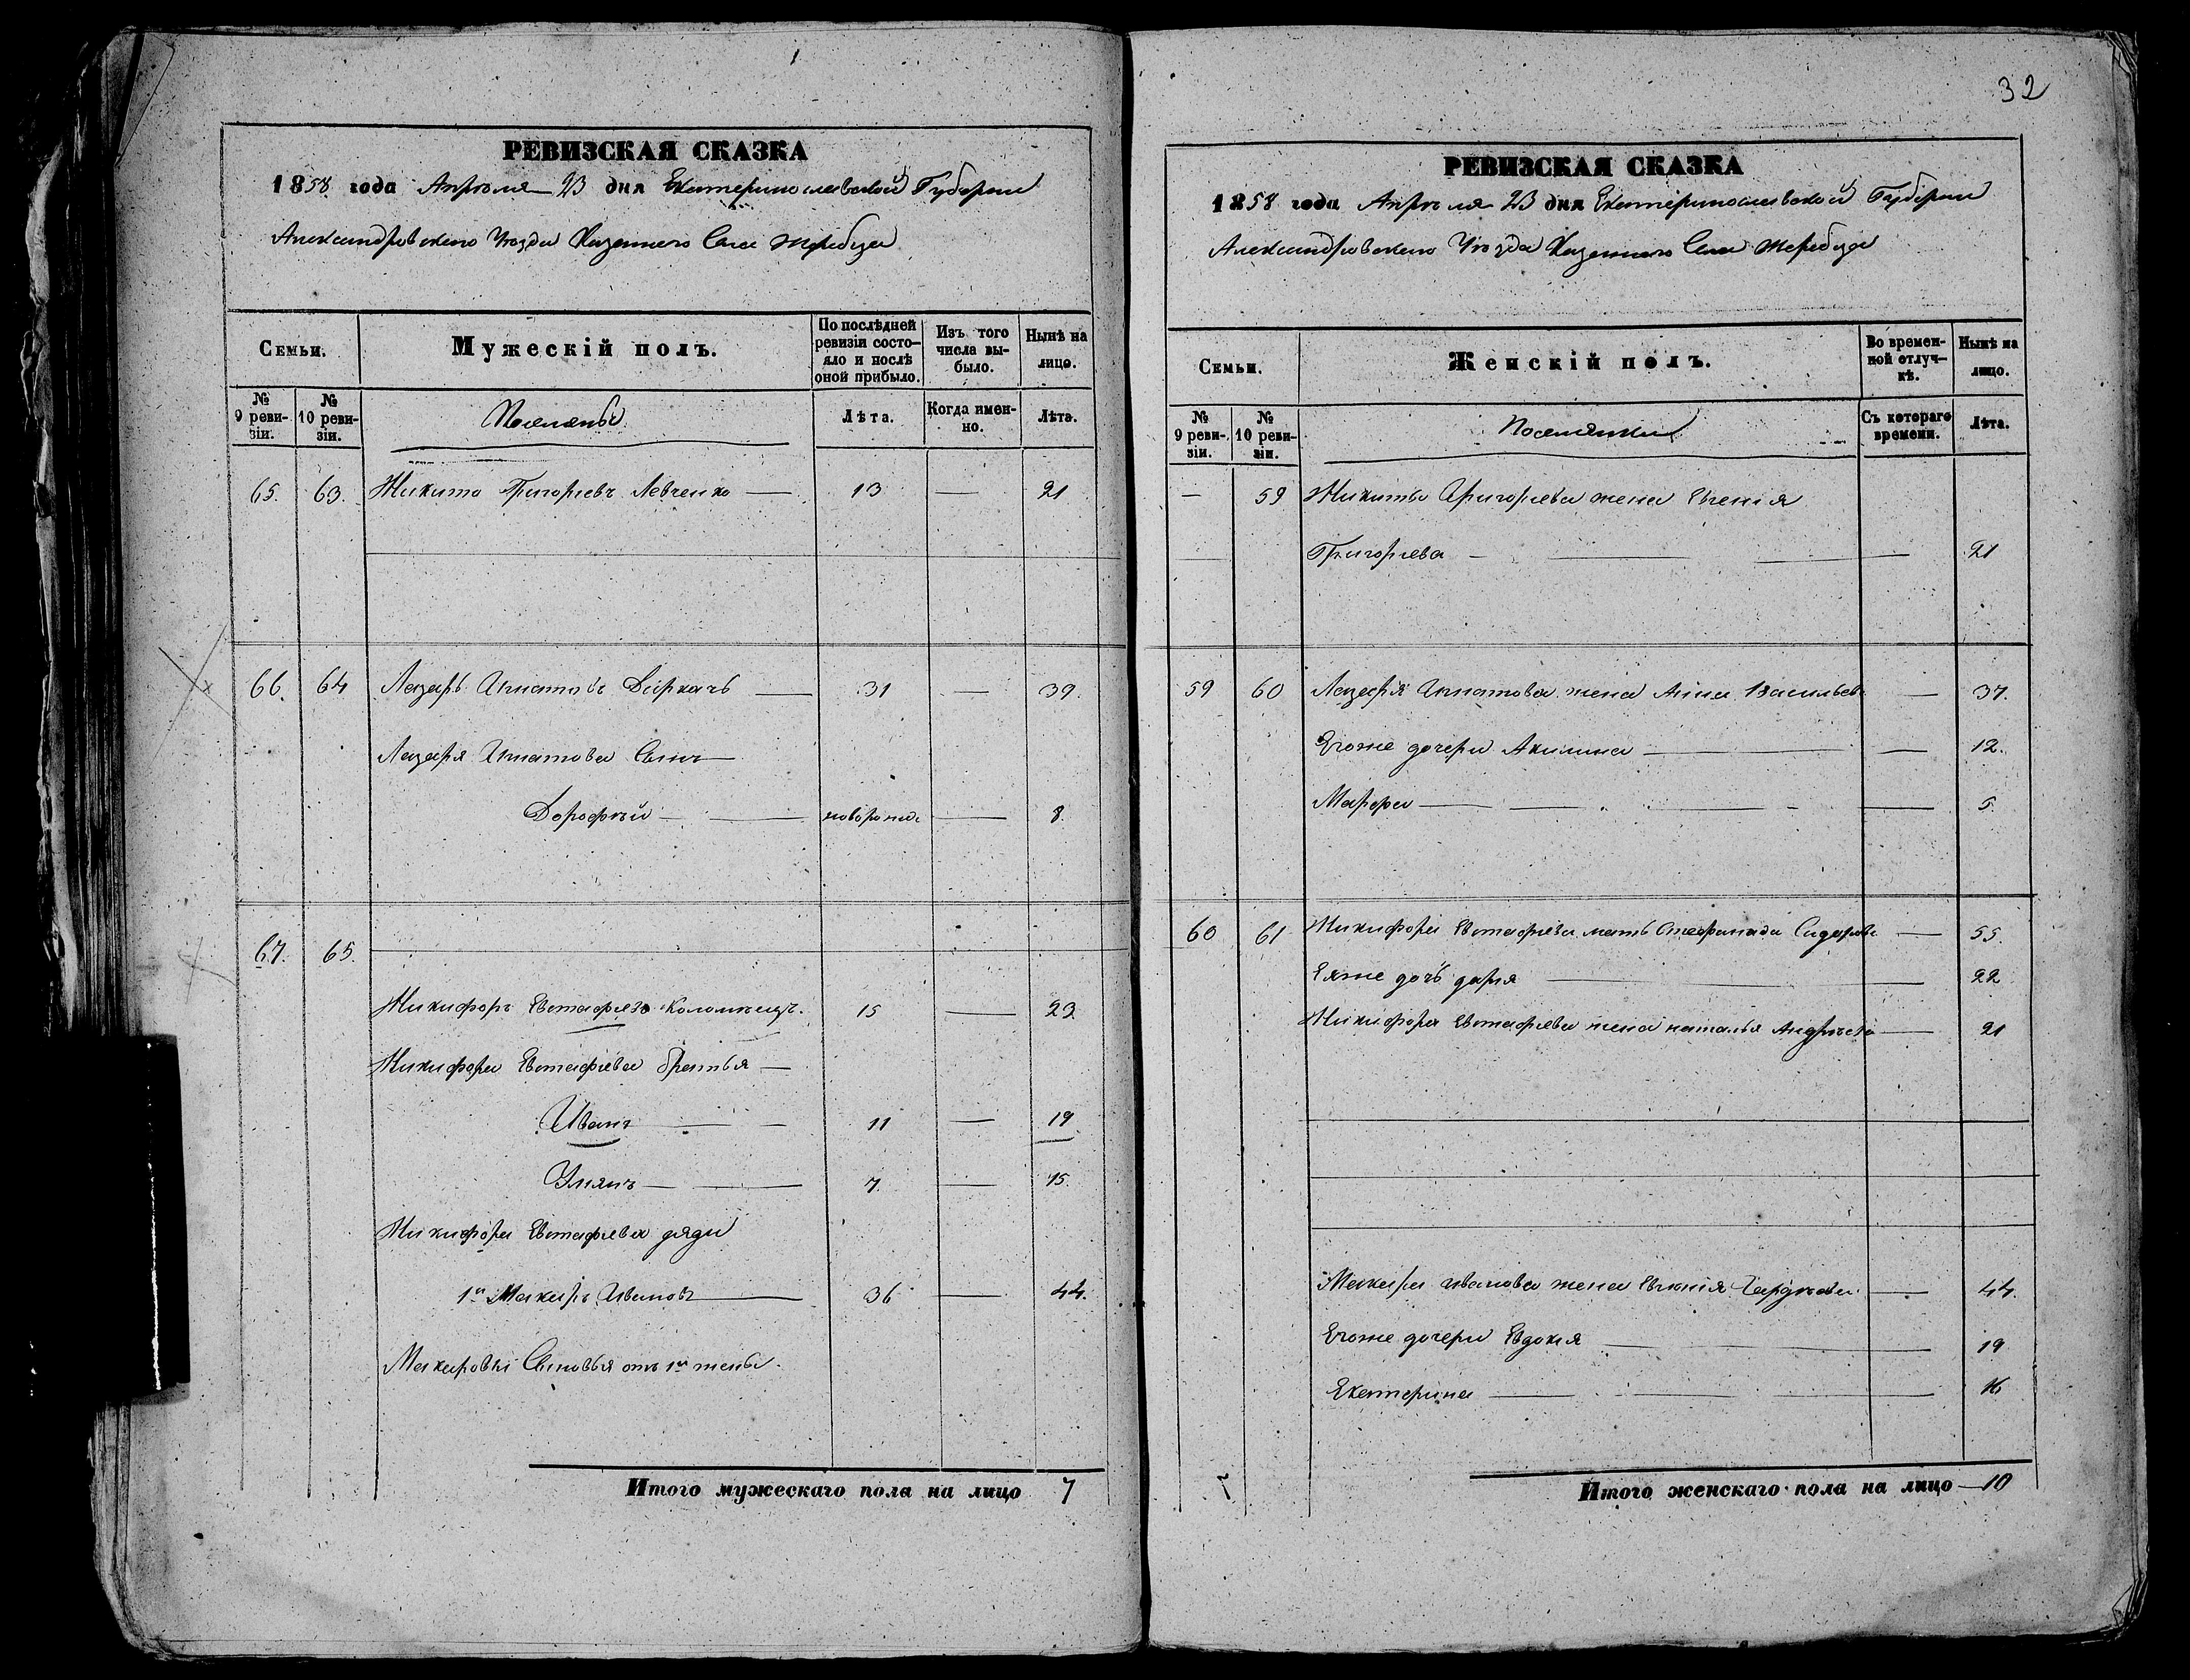 РЕВИЗСКАЯ СКАЗКА
1858 года Апреля 23 дня Екатеринославской Губернии
Александровского Уезда Казенного Села Жеребца
Семьи.
Мужескій полъ.
По послѣдней ревизіи состояло и послѣ оной прибыло.
Изъ того числа выбыло.
Нынѣ на лицо.
№ 9 ревизіи.
№ 10 ревизіи.
Поселяны
Лѣта.
Когда именно.
Лѣта.
65. 63. Никита Григорьевъ Левченко — 13 — 21
66. 64 Лазарь Игнатовъ Диркачъ — 31 — 39.
Лазаря Игнатова Сынъ —
Дорофей — новорожд. — 8.
67. 65.
Никифоръ Евтафьевъ Коломиецъ. 15 — 23
Никифора Евтафiева братья —
Иванъ — 11 — 19
Улиянъ — 7. — 15.
Никифора Евтафiева дяди
1й Макаръ Ивановъ — 36 — 44.
Макаровы Сыновья отъ 1й жены.
Итого мужескаго пола на лицо 7
32
РЕВИЗСКАЯ СКАЗКА
1858 года Апреля 23 дня Екатеринославской Губернии
Александровского Уезда Казенного Села Жеребца
Семьи.
Женскій полъ.
Во временной отлучкѣ.
Нынѣ на лицо.
№ 9 ревизіи.
№ 10 ревизіи.
Поселянки
Съ котораго времени.
Лѣта.
— 59 Никиты Григорьева жена Евгенія
Григорьева — 21
59 60 Лазаря Игнатова жена Анна Васильев — 37.
Егоже дочери Акилина — 12.
Марфа — 5.
60 61 Никифора Евтафiева мать Стефанида Сидорова — 55.
Еяже дочь дарья — 22
Никифора Евтафiева жена наталья Андреева — 21
Макара иванова жена Евгенія — 44.
Егоже дочери Евдокія — 19
Екатерина — 16
7
Итого женскаго пола на лицо — 10